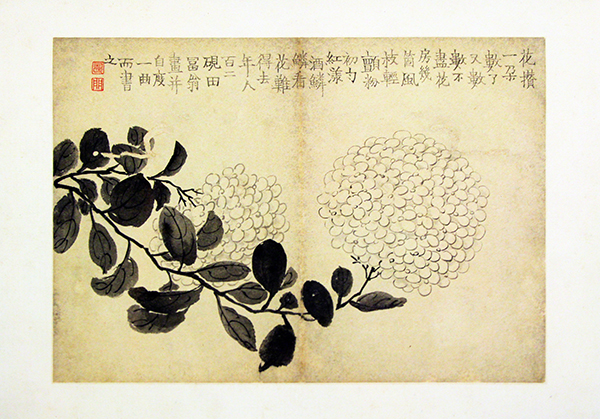 花攢
一朵
數了
又數
數不
盡花
房幾
箇風
枝輕
顫粉
初勻
紅漾
酒鱗
鱗看
花難
得去
年人
百二
硯田
冨翁
畫并
自度
一曲
而書
之